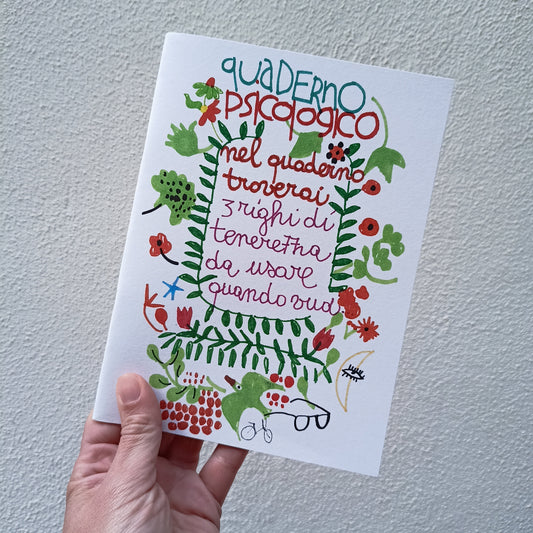 quaDERNO
PSICOLOGICO
nel quaderno
troverai
3 righi di
tenereZha
da usare
quando vuoi